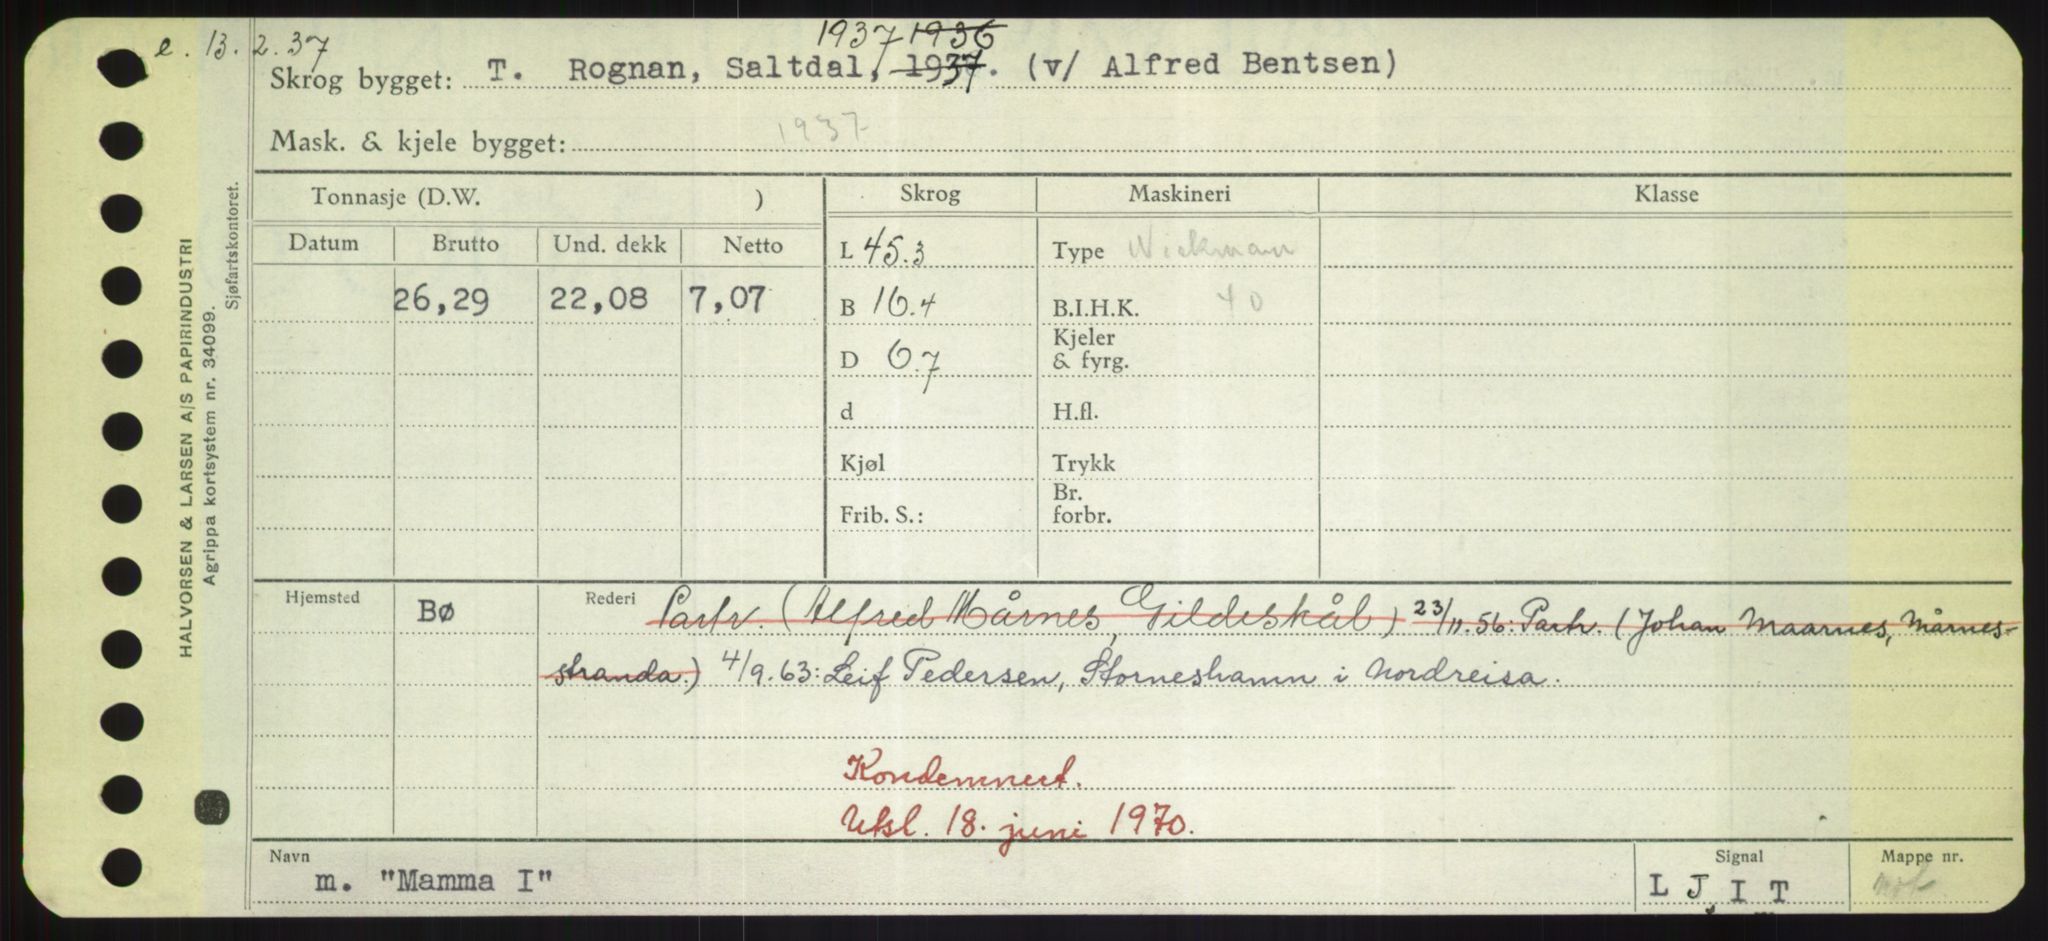 e. 13.2.37
1937 1936
Skrog bygget: T. Rognan, Saltdal, 1937. (v/ Alfred Bentsen)
Mask. & kjele bygget: 1937
Tonnasje (D.W. )
Skrog
Maskineri
Klasse
Datum
Brutto
Und. dekk
Netto
26,29
22,08
7,07
L 45.3
B 16.4
D 6.7
d
Kjøl
Frib. S.:
Type Wickman
B.I.H.K. 40
Kjeler
& fyrg.
H.fl.
Trykk
Br.
forbr.
Hjemsted
Bø
Rederi Partr. (Alfred Mårnes, Gildeskål) 23/11.56: Partr. (Johan Maarnes, Mårnes-
stranda.) 4/9.63: Leif Pedersen, Storneshamn i Nordreisa.
Kondemnert.
Utsl. 18. juni 1970.
Navn
m. "Mamma I"
Signal
L J I T
Mappe nr.
mot
HALVORSEN & LARSEN A/S PAPIRINDUSTRI
Agrippa kortsystem nr. 34099.
Sjøfartskontoret.